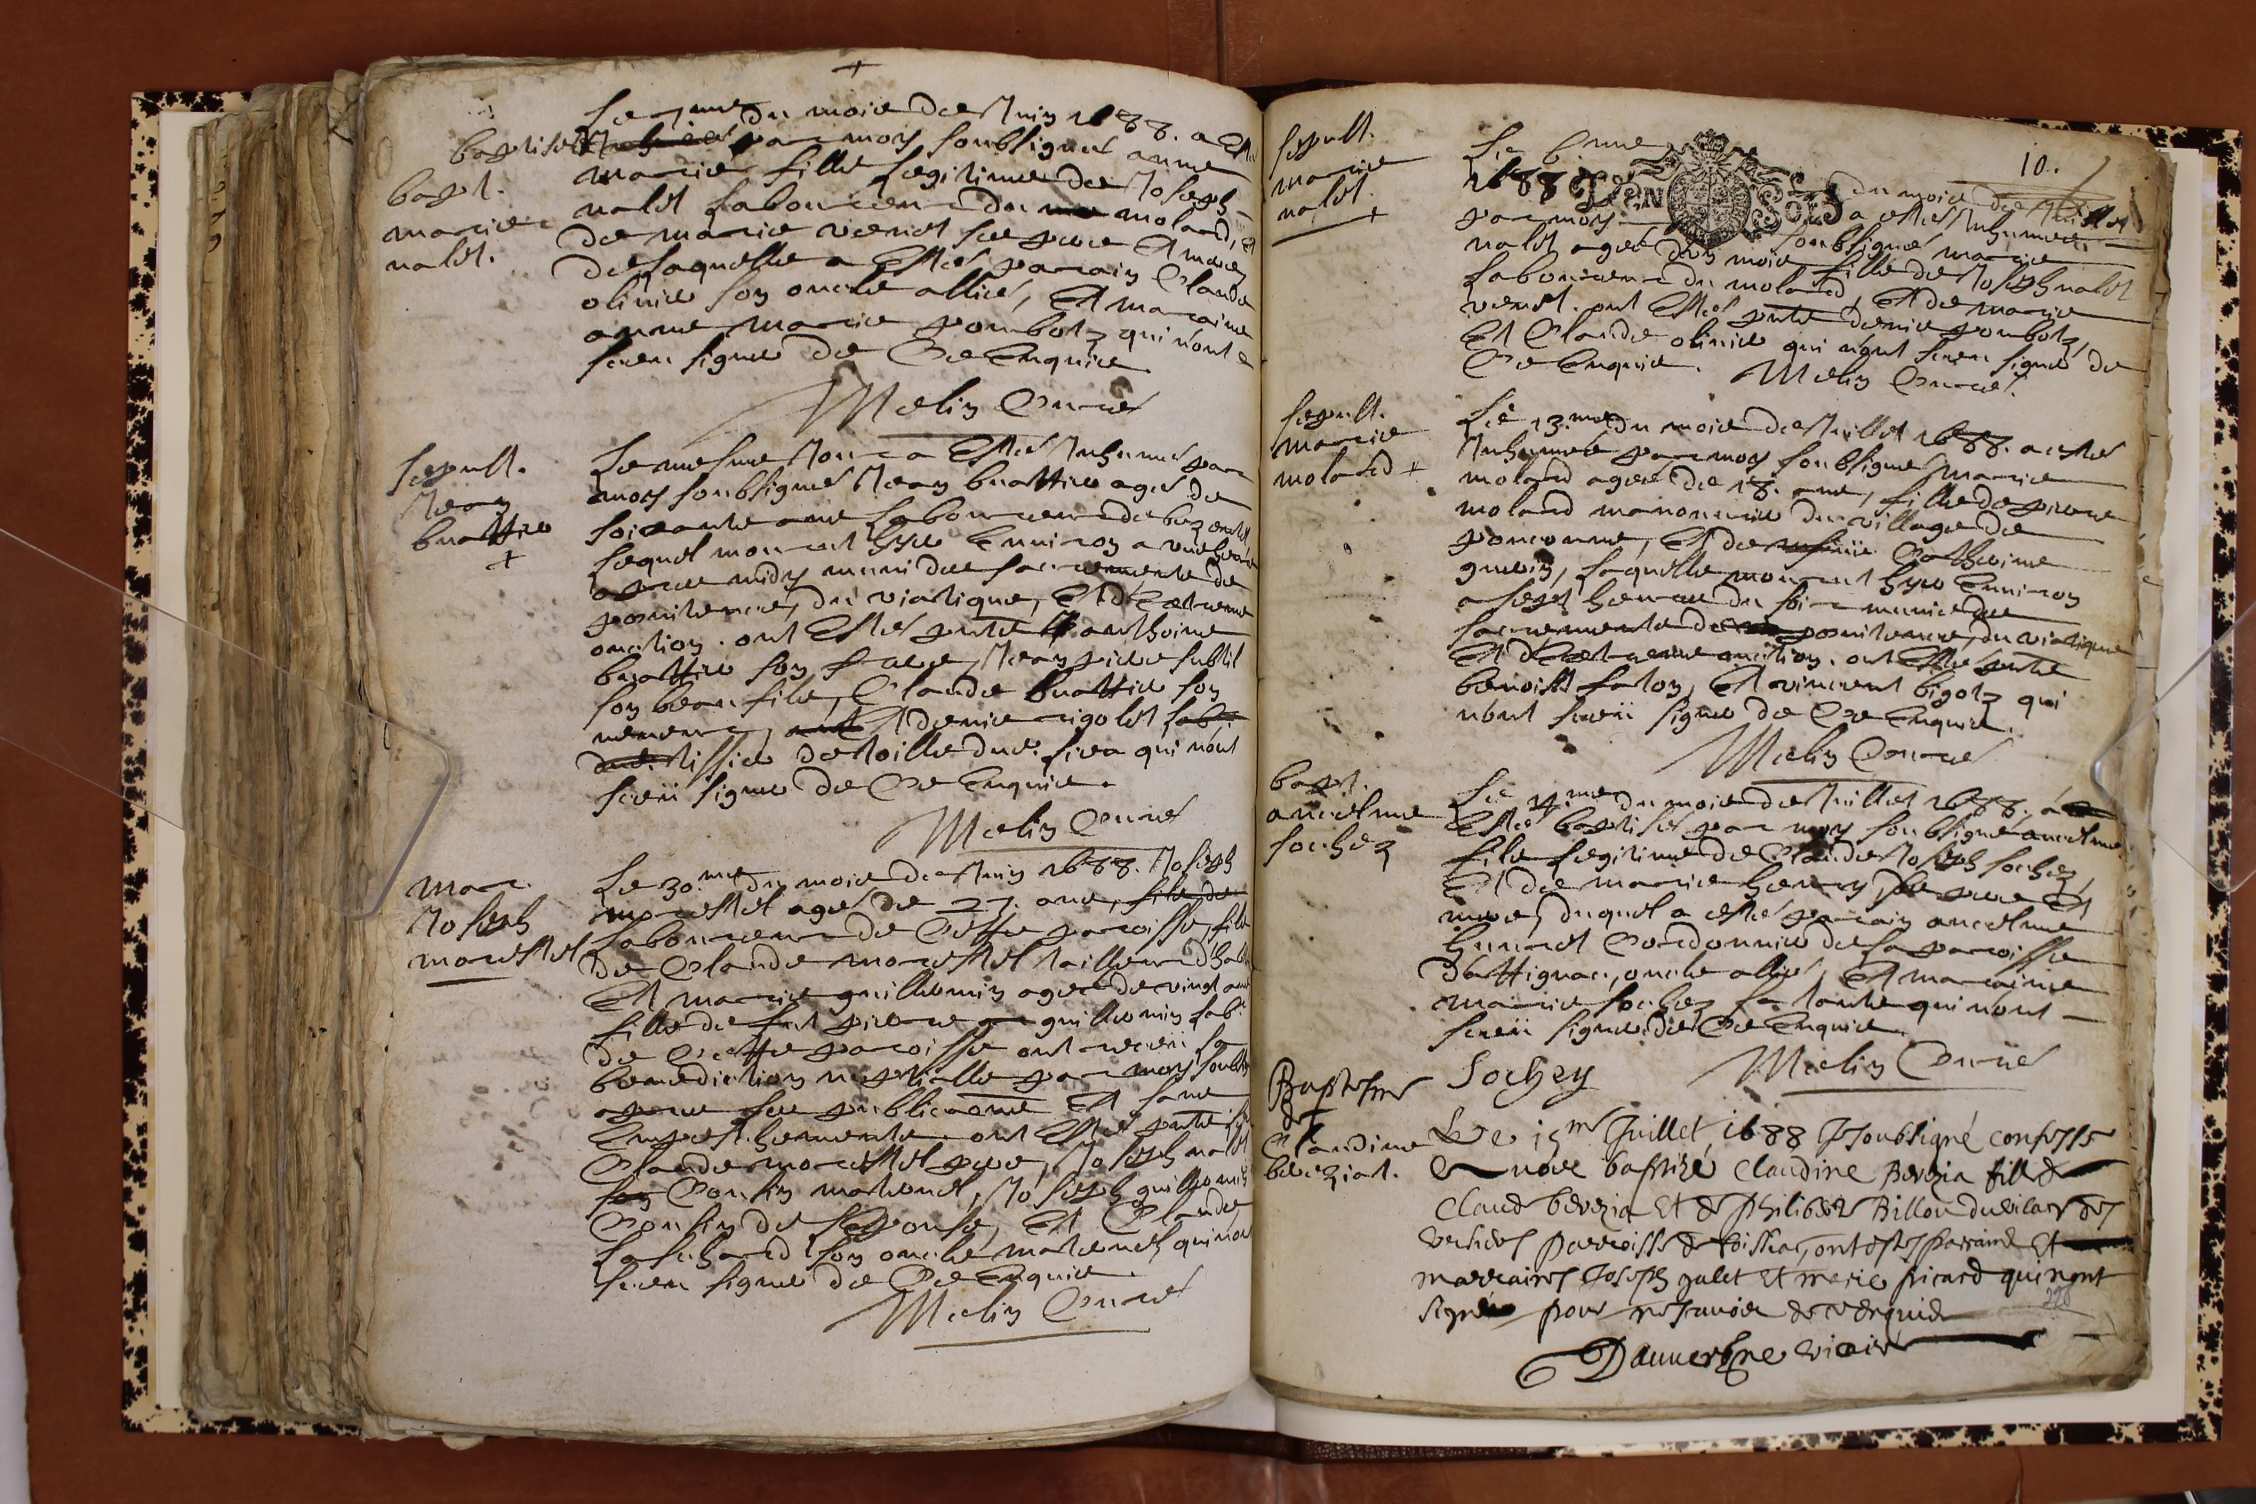 Le 7.me du moice de Juin 1688. a Esté
baptiseé par moy soubsigné anne
bapt.
marie
nalet.
marie fille Legitime de Joseph
nalet Laboureur du molard, et
de marie venet ses pere Et mere,
de laquelle a Esté parain Claude
olinier son oncle allié, Et maraine
anne marie pombotz qui n'ont
sceu signer de Ce Enquis
Melin Curé
sepult.
Jean
buattier
+
Le mesme Jour a Esté Inhumé par
moy soubsigné Jean buattier agé de
soixante ans Laboureur
Lequel mourut hyer Environ a une heure
apres midy muni des sacrements de
penitence, du viatique, Et d'Extreme
onction. ont Esté pnts anthoine
buattier son frere, Jean pierre subtil
son beau fils, Claude buattier son
neveur, Et denis rigolet
tissier de toille qui n'ont
sceu signer de Ce Enquis.
Melin Curé
mar.
Joseph
morestel
Le 30.me du moice de Juin 1688. Joseph
morestel agé de 27. ans, fils de
Laboureur de Cette paroisse, fils
de Claude morestel tailleur
Et marie guillemin ageé de vingt ans
fille de fut pierre guillemin lab.
de Cette paroisse ont receu la
benediction nuptialle par moy
apres les publicaons Et sans
Empeschements. ont Esté pnts
Claude morestel pere, Joseph nalet
son Cousin maternel, Joseph guillemin
Cousin de L'Epouse, Et Claude
son oncle maternel qui n'ont
sceu signer de Ce Enquis.
Melin Curé
10.
sepult.
marie
nalet.
+
Le 6.me du moice de Juillet
1688 a esté Inhumeé
par moy soubsigné marie
nalet ageé d'un mois fille de Joseph nalet
Laboureur du molard, Et de marie
venet. ont Esté pnts denis pombotz,
Et Claude olinier qui n'ont sceu signer de
Ce Enquis. Melin Curé.
sepult.
marie
molard +
Le 13.me du moice de Juillet 1688. a esté
Inhumeé par moy soubsigné marie
molard ageé de 18. ans, fille de pierre
molard manouvrier du village de
ponconne, Et de Catherine
guerin, laquelle mourut hyer Environ
a sept heures du soir munie des
sacrements de penitence, du viatique
Et d'Extreme onction. ont Esté pnts
benoist falon, Et vincent bigotz qui
n'ont sceü signer de Ce Enquis.
Melin Curé
bapt.
ancelme
sochez
Le 14.me du moice de Juillet 1688. a
Esté baptisé par moy soubsigné ancelme
fils Legitime de Claude Joseph sochez,
Et de marie henry ses pere Et
mere, duquel a esté parain ancelme
Cordonnier de la paroisse
d'attignac, oncle allié, Et maraine
marie sochez sa tante qui n'ont
sceü signer de Ce Enquis.
Sochey Melin Curé
Baptesme
de
Claudine
beveziat.
Le 15.me Juillet 1688 Je soubsigné confesse
avoir baptizé Claudine Bevezia fille de
Claude bevezia Et de philiberte Billou du vilar des
versieres parroisse de foissiat, ont estes parrain Et
marraines Joseph galet Et marie picard qui n'ont
signé pour ne scavoir de ce enquis
226
Dauuergne vicaire